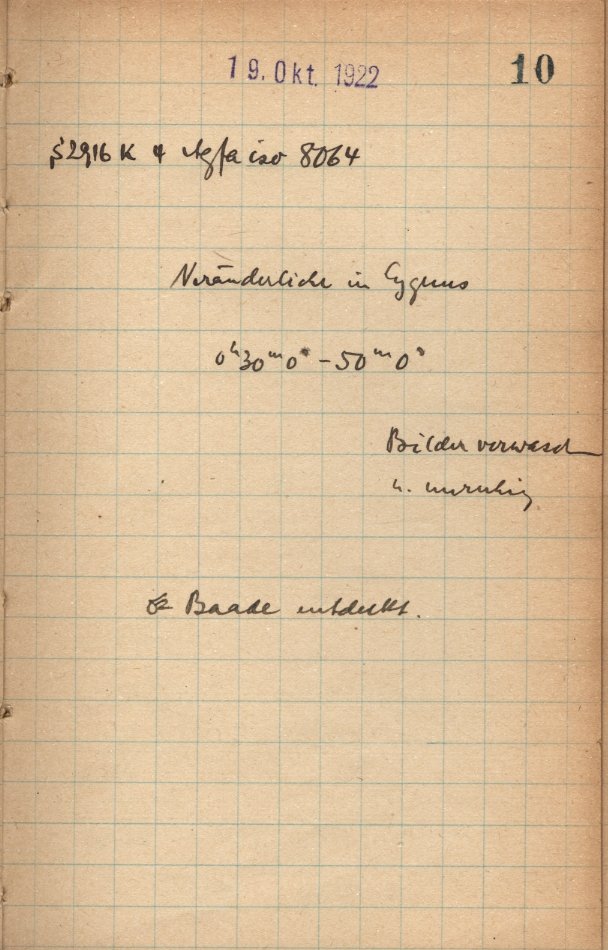 19. Okt. 1922
10
S 2916 K 4 Agfa iso 8064
Veränderliche in Cygnus
0ʰ30ᵐ0ˢ – 50ᵐ0ˢ
Bilder verwasch
u. unruhig
Baade entdeckt.